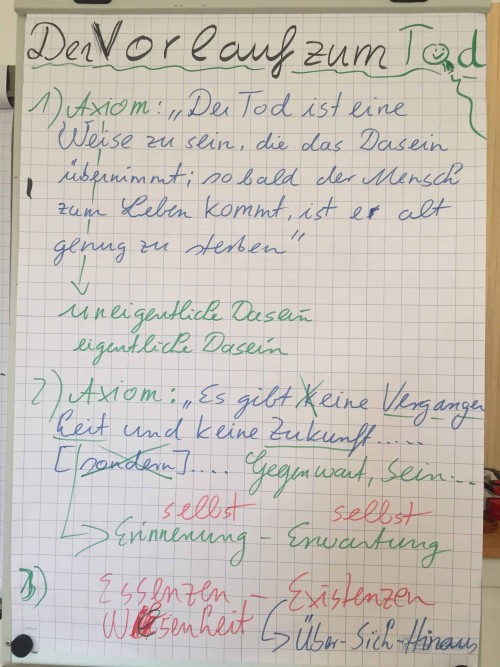 Der Vorlauf zum Tod
1) Axiom: „Der Tod ist eine
Weise zu sein, die das Dasein
übernimmt; sobald der Mensch
zum Leben kommt, ist er alt
genug zu sterben”
uneigentliche Dasein
eigentliche Dasein
2) Axiom: „Es gibt keine Vergangen
heit und keine Zukunft.....
[sondern].... Gegenwart, Sein...
selbst selbst
Erinnerung - Erwartung
3) Essenzen - Existenzen
Wesenheit Über-Sich-Hinaus